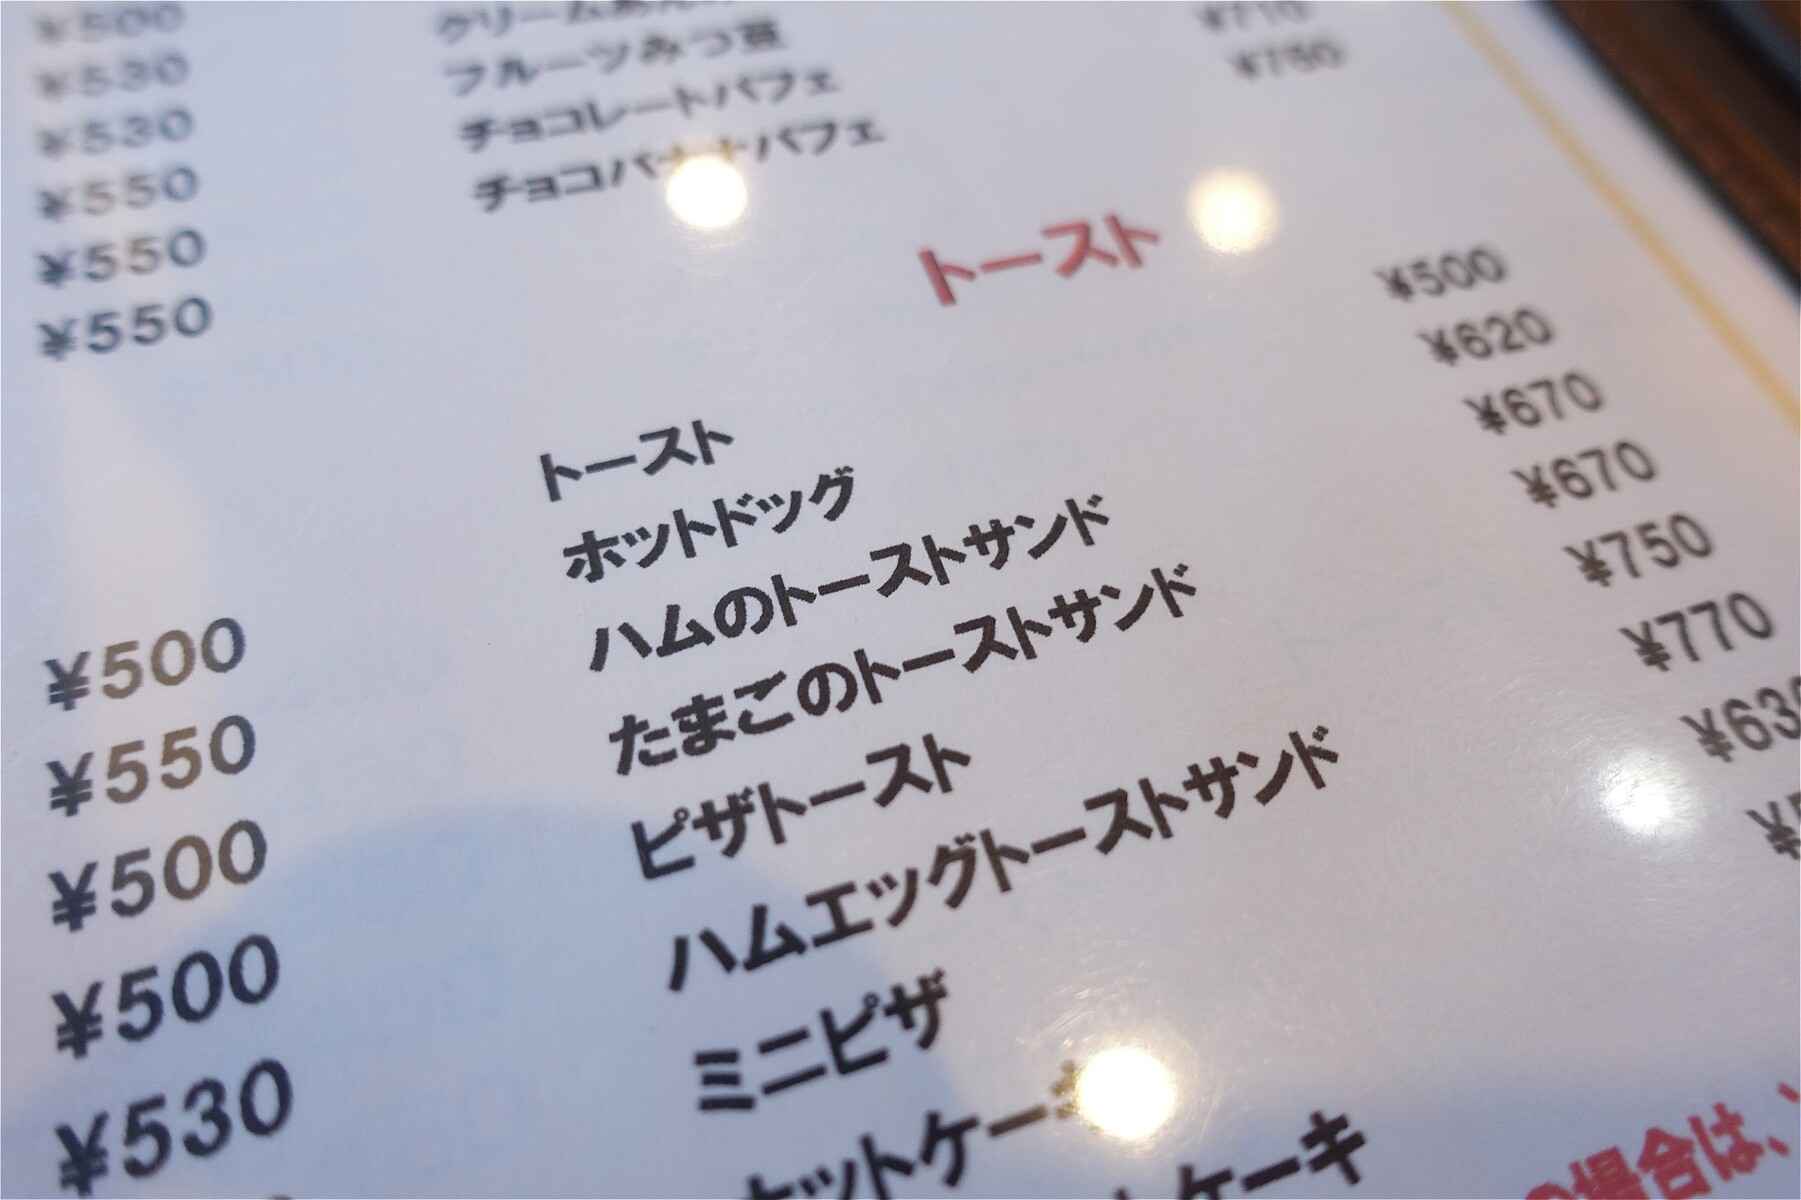 ¥500
¥530
¥530
¥550
¥550
¥550
¥500
¥550
¥500
¥500
¥530
フルーツみつ豆 ¥710
チョコレートパフェ ¥750
チョコバナナパフェ
トースト
トースト ¥500
ホットドッグ ¥620
ハムのトーストサンド ¥670
たまこのトーストサンド ¥670
ピザトースト ¥750
ハムエッグトーストサンド ¥770
ミニピザ ¥63
ホットケーキ
ケーキ
の場合は、